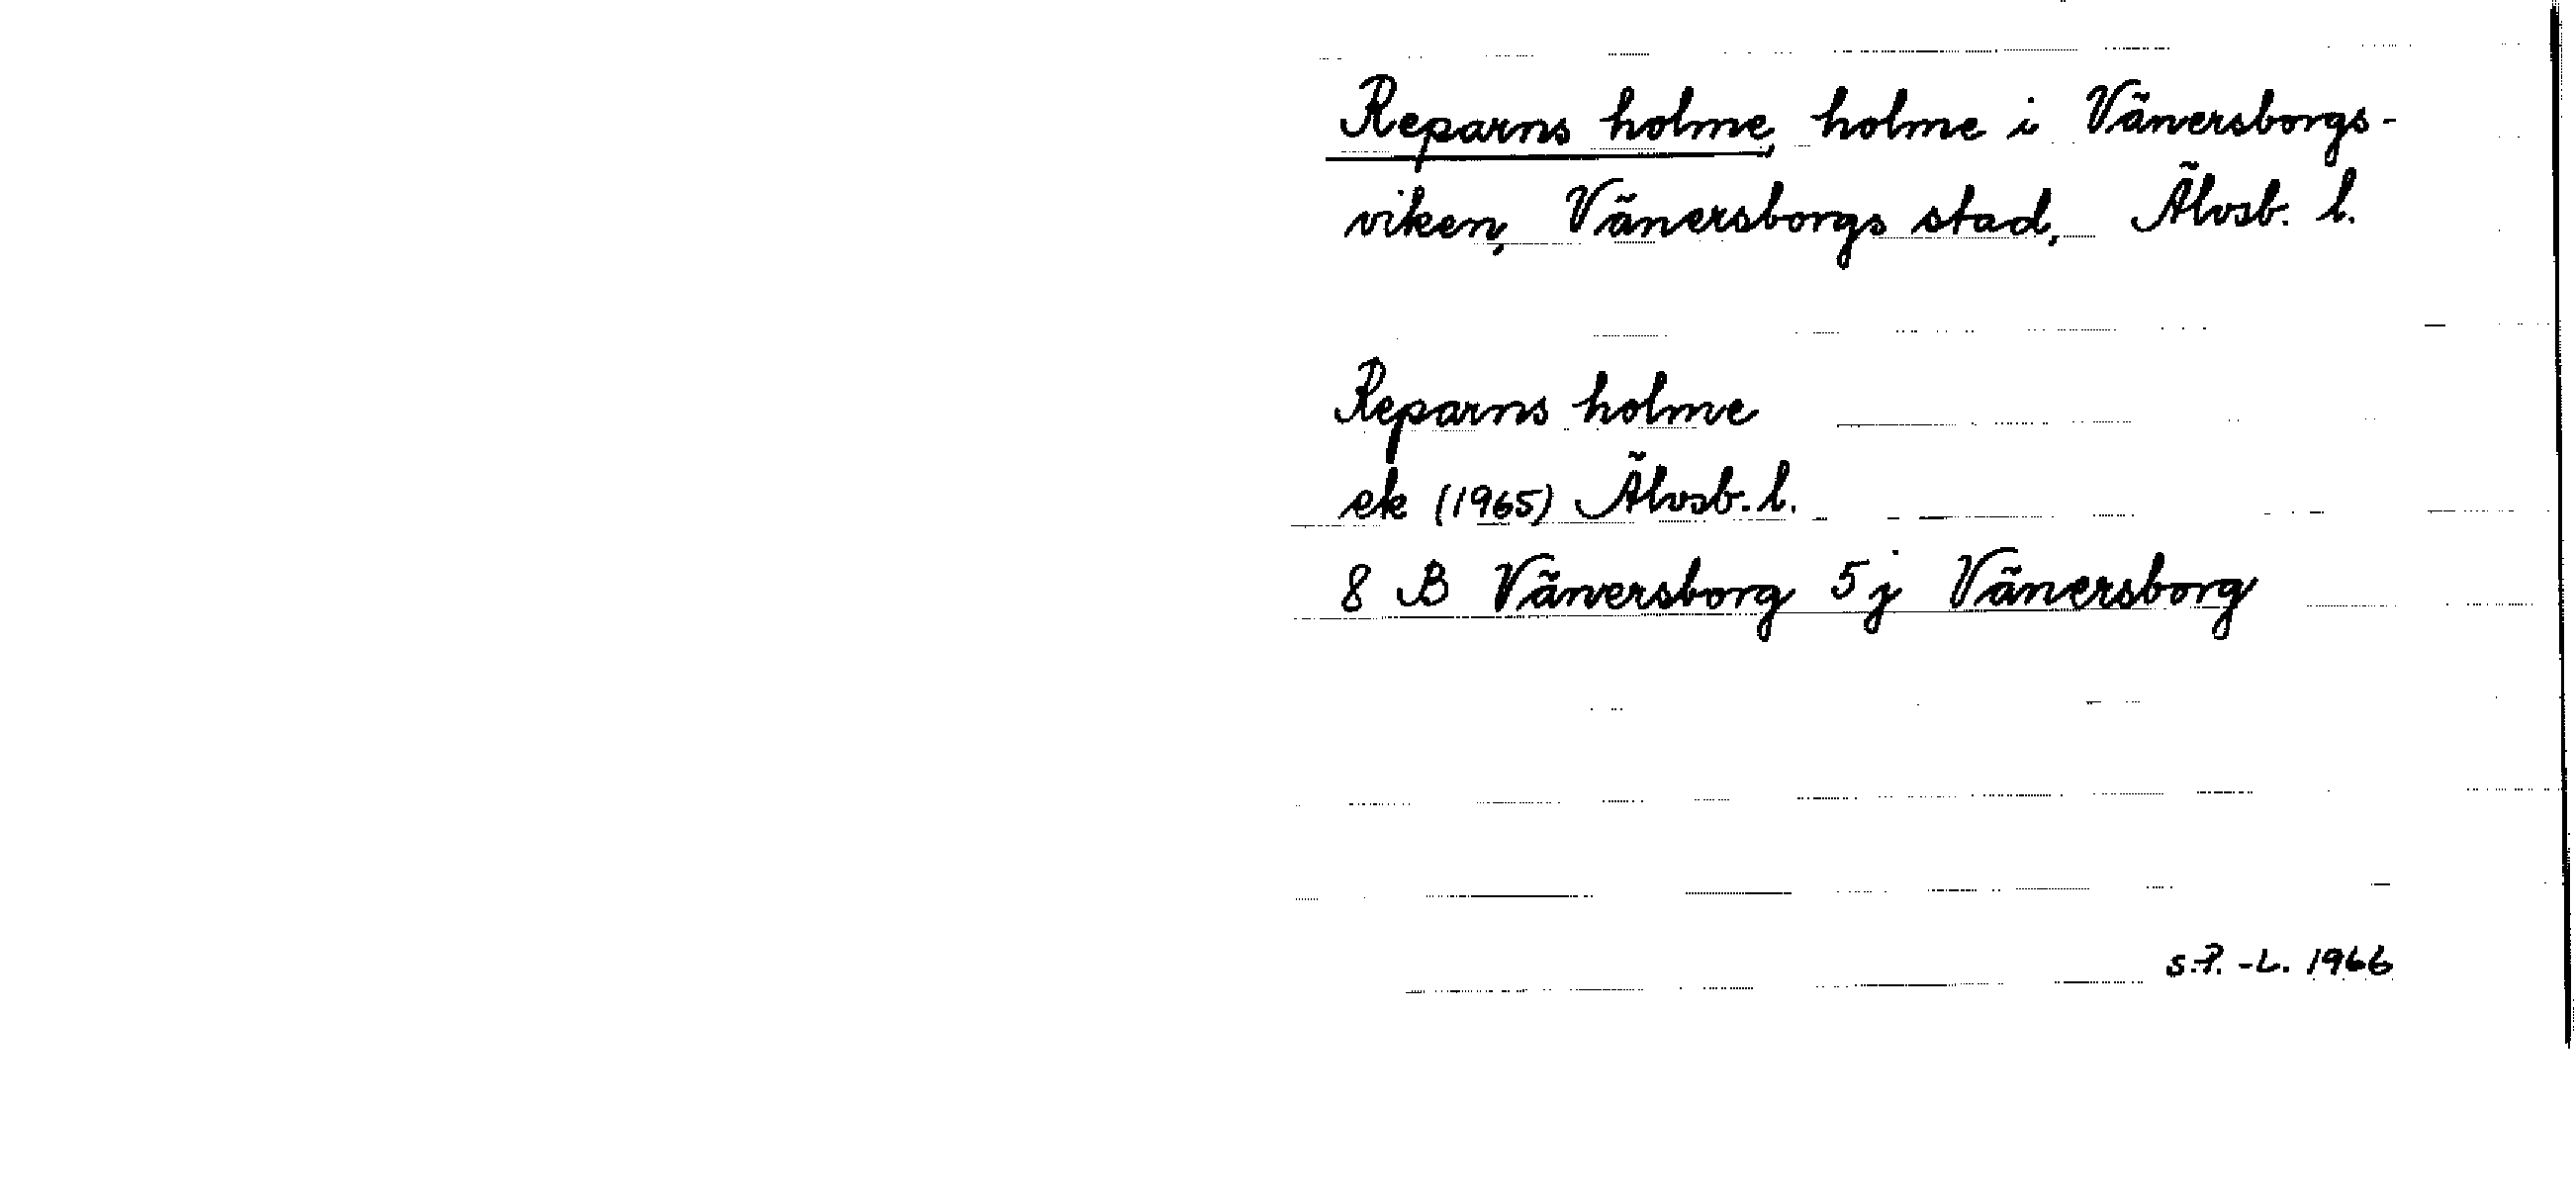 Reparns holme, holme i Vänersborgs-
viken, Vänersborgs stad, Älvsb. l.
Reparns holme
ek (1965) Älvsb. l.
8 B Vänersborg 5j Vänersborg
S.P.-L. 1966